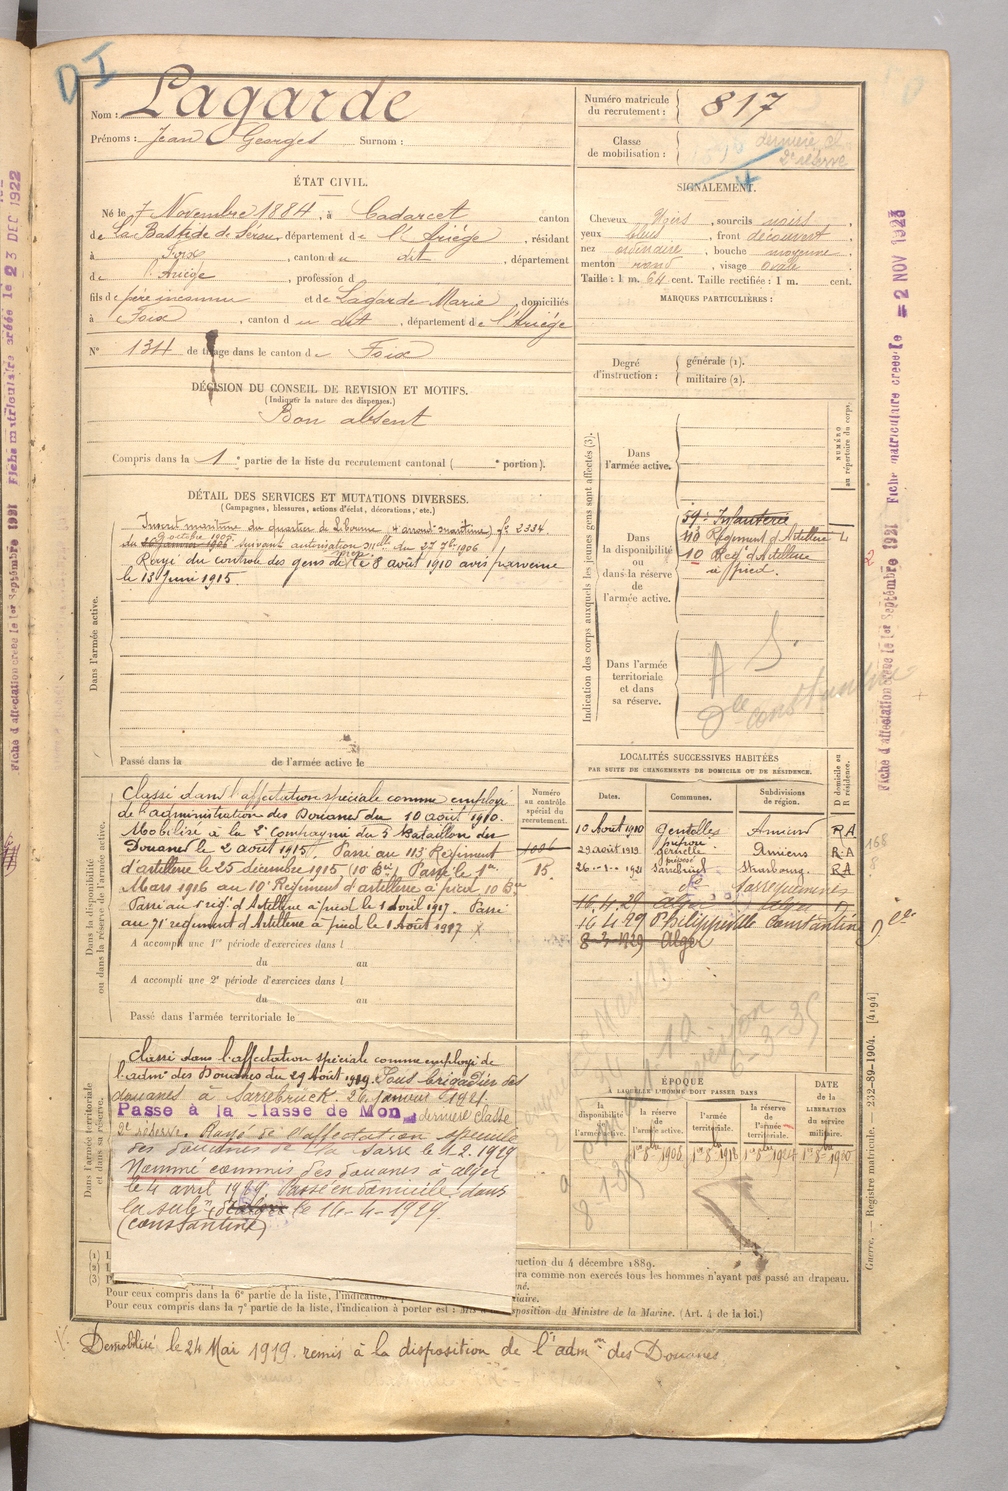 DI
Nom : Lagarde
Prénoms : Jean Georges Surnom :
Numéro matricule du recrutement : 817
Classe de mobilisation :
dernière
2e réserve
ÉTAT CIVIL.
Né le 7 Novembre 1884, à Cadarcet canton
de La Bastide de Sérou, département de l'Ariége, résidant
à Foix, canton du dit, département
de l'Ariége, profession d
fils de père inconnu et de Lagarde Marie domiciliés
à Foix, canton du dit, département de l'Ariége
N° 134 de tirage dans le canton de Foix
SIGNALEMENT.
Cheveux Noirs, sourcils noirs,
yeux bleus, front découvert,
nez ordinaire, bouche moyenne,
menton rond, visage ovale
Taille : 1 m. 64 cent. Taille rectifiée : 1 m. cent.
MARQUES PARTICULIÈRES :
Degré d'instruction :
générale (1).
militaire (2).
DÉCISION DU CONSEIL DE REVISION ET MOTIFS.
(Indiquer la nature des dispenses.)
Bon absent
Compris dans la 1e partie de la liste du recrutement cantonal ( e portion).
DÉTAIL DES SERVICES ET MUTATIONS DIVERSES.
(Campagnes, blessures, actions d'éclat, décorations, etc.)
Dans l'armée active.
Inscrit maritime du quartier de Libourne (4e arrondt maritime) fo 2334
9 octobre 1905
du suivant autorisation mlle du 27 7bre 1906
Rayé du controle des gens de le 8 août 1910 avis parvenu
le 13 Juin 1915
Passé dans la de l'armée active le
Indication des corps auxquels les jeunes gens sont affectés (3).
NUMÉRO au répertoire du corps.
Dans l'armée active.
Dans la disponibilité ou dans la réserve de l'armée active.
59e Infanterie
113 Régiment d'Artillerie
10 Reg. d'Artillerie
à pied.
2
Dans l'armée territoriale et dans sa réserve.
A S
Constantine
Dans la disponibilité ou dans la réserve de l'armée active.
Classé dans l'affectation spéciale comme employé
de l'administration des Douanes du 10 août 1910.
Mobilisé à la 2e Compagnie du 5 Bataillon des
Douanes le 2 août 1915. Passé au 113e Régiment
d'artillerie le 25 décembre 1915 (10 Bie). Passé le 1er
Mars 1916 au 10e Régiment d'artillerie à pied 10 Bie
Passé au 1er reg. d'Artillerie à pied le 1 Avril 1917. Passé
au 71e régiment d'Artillerie à pied le 1 Août 1917 X
A accompli une 1re période d'exercices dans l
du au
A accompli une 2e période d'exercices dans l
du au
Passé dans l'armée territoriale le
Numéro au contrôle spécial du recrutement.
1086
15.
LOCALITÉS SUCCESSIVES HABITÉES
PAR SUITE DE CHANGEMENTS DE DOMICILE OU DE RÉSIDENCE.
Dates. Communes. Subdivisions de région. D domicile ou R résidence.
10 Août 1910 Gentelles Amiens RA
29 août 1919 Amiens RA
26-1-1921 Sarrebruck Strasbourg. RA
Sarreguemines
16.4.29 Alger Alger D
16.4.29 Philippeville Constantine D
8-3-1929 Alger
168
8
Dans l'armée territoriale et dans sa réserve.
Classé dans l'affectation spéciale comme employé de
l'admon des Douanes du 29 Août 1919. Sous brigadier des
douanes à Sarrebruck. 26 janvier 1921.
Passé à la Classe de Mon dernière classe
2e réserve. Rayé de l'affectation spéciale
des douanes de la Sarre le 9.2.1929
Nommé commis des douanes à Alger
le 4 avril 1929. Passé en domicile dans
la subon d'Alger le 16-4-1929
(Constantine)
ÉPOQUE
À LAQUELLE L'HOMME DOIT PASSER DANS
la disponibilité de l'armée active.
la réserve de l'armée active.
l'armée territoriale.
la réserve de l'armée territoriale.
DATE DE LA LIBÉRATION DU SERVICE militaire.
1er 8bre 1908 1er 8bre 1918 1er 8bre 1924
6-3-35
(1) I
(2) I
(3) I
ruction du 4 décembre 1889.
ra comme non exercés tous les hommes n'ayant pas passé au drapeau.
Pour ceux compris dans la 6e partie de la liste, l'indication
Pour ceux compris dans la 7e partie de la liste, l'indication à porter est : Mis à la disposition du Ministre de la Marine. (Art. 4 de la loi.)
Démobilisé le 24 Mai 1919. remis à la disposition de l'admon des Douanes
Guerre. — Registre matricule. — 232-89-1904. [4194]
Fiche d'affectation créée le 1er Septembre 1921 Fiche matriculaire créée le 2 NOV 1923
Fiche d'affectation créée le 1er Septembre 1921 Fiche matriculaire créée le 23 DEC 1922